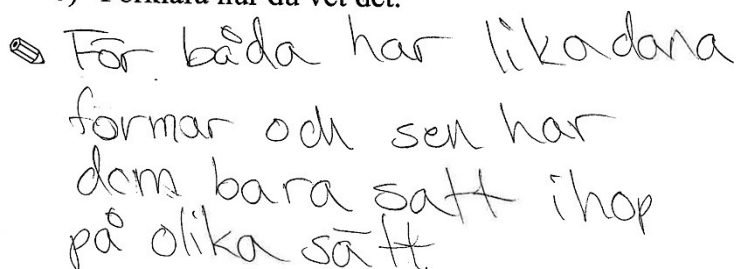 För båda har likadana
formar och sen har
dem bara satt ihop
på olika sätt.